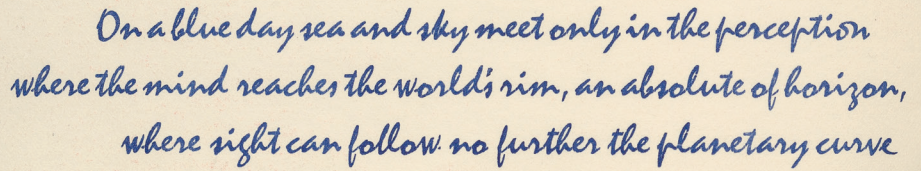 On a blue day sea and sky meet only in the perception
where the mind reaches the world's rim, an absolute of horizon,
where sight can follow no further the planetary curve